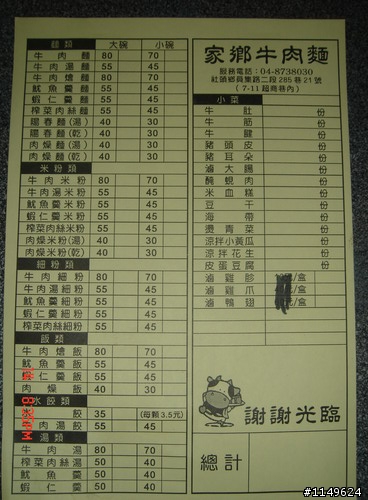 麵類 大碗 小碗
牛肉麵 80 70
牛肉湯麵 55 45
牛肉燴麵 80 70
魷魚羹麵 55 45
蝦仁羹麵 55 45
榨菜肉絲麵 55 45
陽春麵(湯) 40 30
陽春麵(乾) 40 30
肉燥麵(湯) 40 30
肉燥麵(乾) 40 30
米粉類
牛肉米粉 80 70
牛肉湯米粉 55 45
魷魚羹米粉 55 45
蝦仁羹米粉 55 45
榨菜肉絲米粉 55 45
肉燥米粉(湯) 40 30
肉燥米粉(乾) 40 30
細粉類
牛肉細粉 80 70
牛肉湯細粉 55 45
魷魚羹細粉 55 45
蝦仁羹細粉 55 45
榨菜肉絲細粉 55 45
飯類
牛肉燴飯 80 70
魷魚羹飯 55 45
蝦仁羹飯 55 45
肉燥飯 40 30
水餃類
水餃 35 (每顆3.5元)
牛肉湯餃 55 45
湯類
牛肉湯 80 70
榨菜肉絲湯 50 40
魷魚羹 50 40
蝦仁羹 50 40
家鄉牛肉麵
服務電話：04-8738030
社頭鄉員集路二段285巷21號
(7-11超商巷內)
小菜
牛肚 份
牛筋 份
牛腱 份
豬頭皮 份
豬耳朵 份
滷大腸 份
醃蜆肉 份
米血糕 份
豆干 份
海帶 份
燙青菜 份
涼拌小黃瓜 份
涼拌花生 份
皮蛋豆腐 份
滷雞胗 元/盒
滷雞爪 元/盒
滷鴨翅 元/盒
謝謝光臨
總計
#1149624